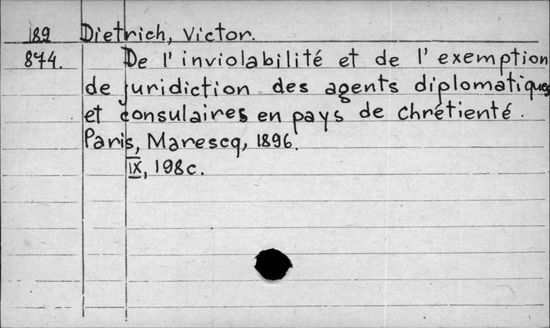 189 Dietrich, Victor.
874. De l'inviolabilité et de l'exemption
de juridiction des agents diplomatiques
et consulaires en pays de chrétienté.
Paris, Marescq, 1896.
IX, 198c.